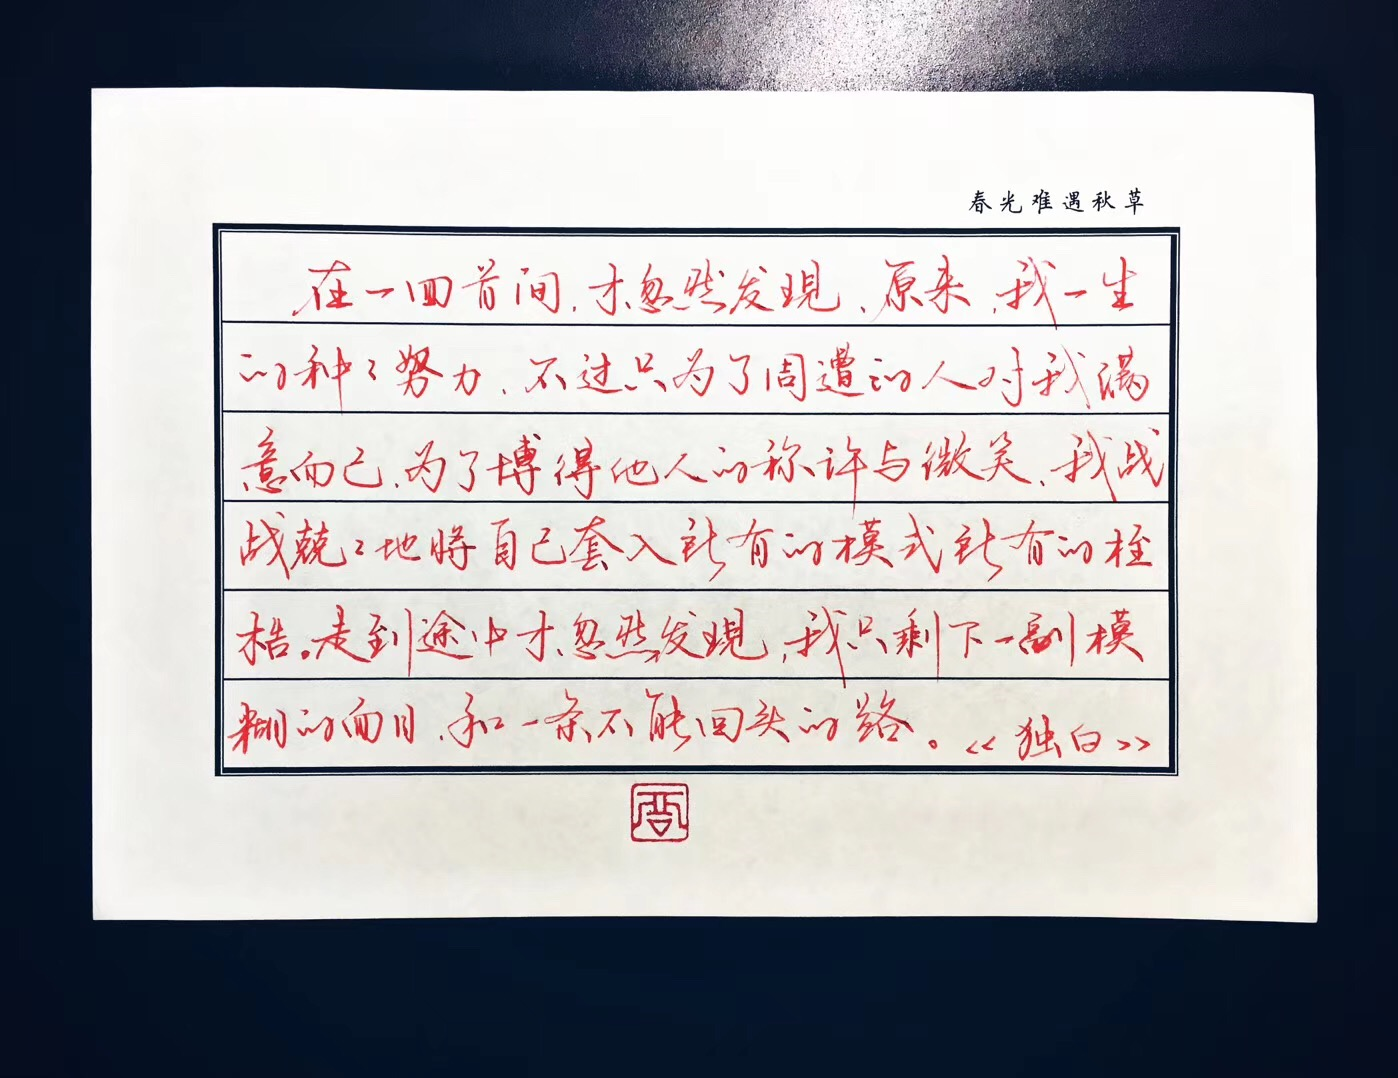 春光难遇秋草
在一回首间,才忽然发现、原来,我一生
的种々努力、不过只为了周遭的人对我满
意而已,为了博得他人的称许与微笑、我战
战兢々地将自己套入所有的模式所有的桎
梏。走到途中才忽然发现,我只剩下一副模
糊的面目,和一条不能回头的路。《独白》